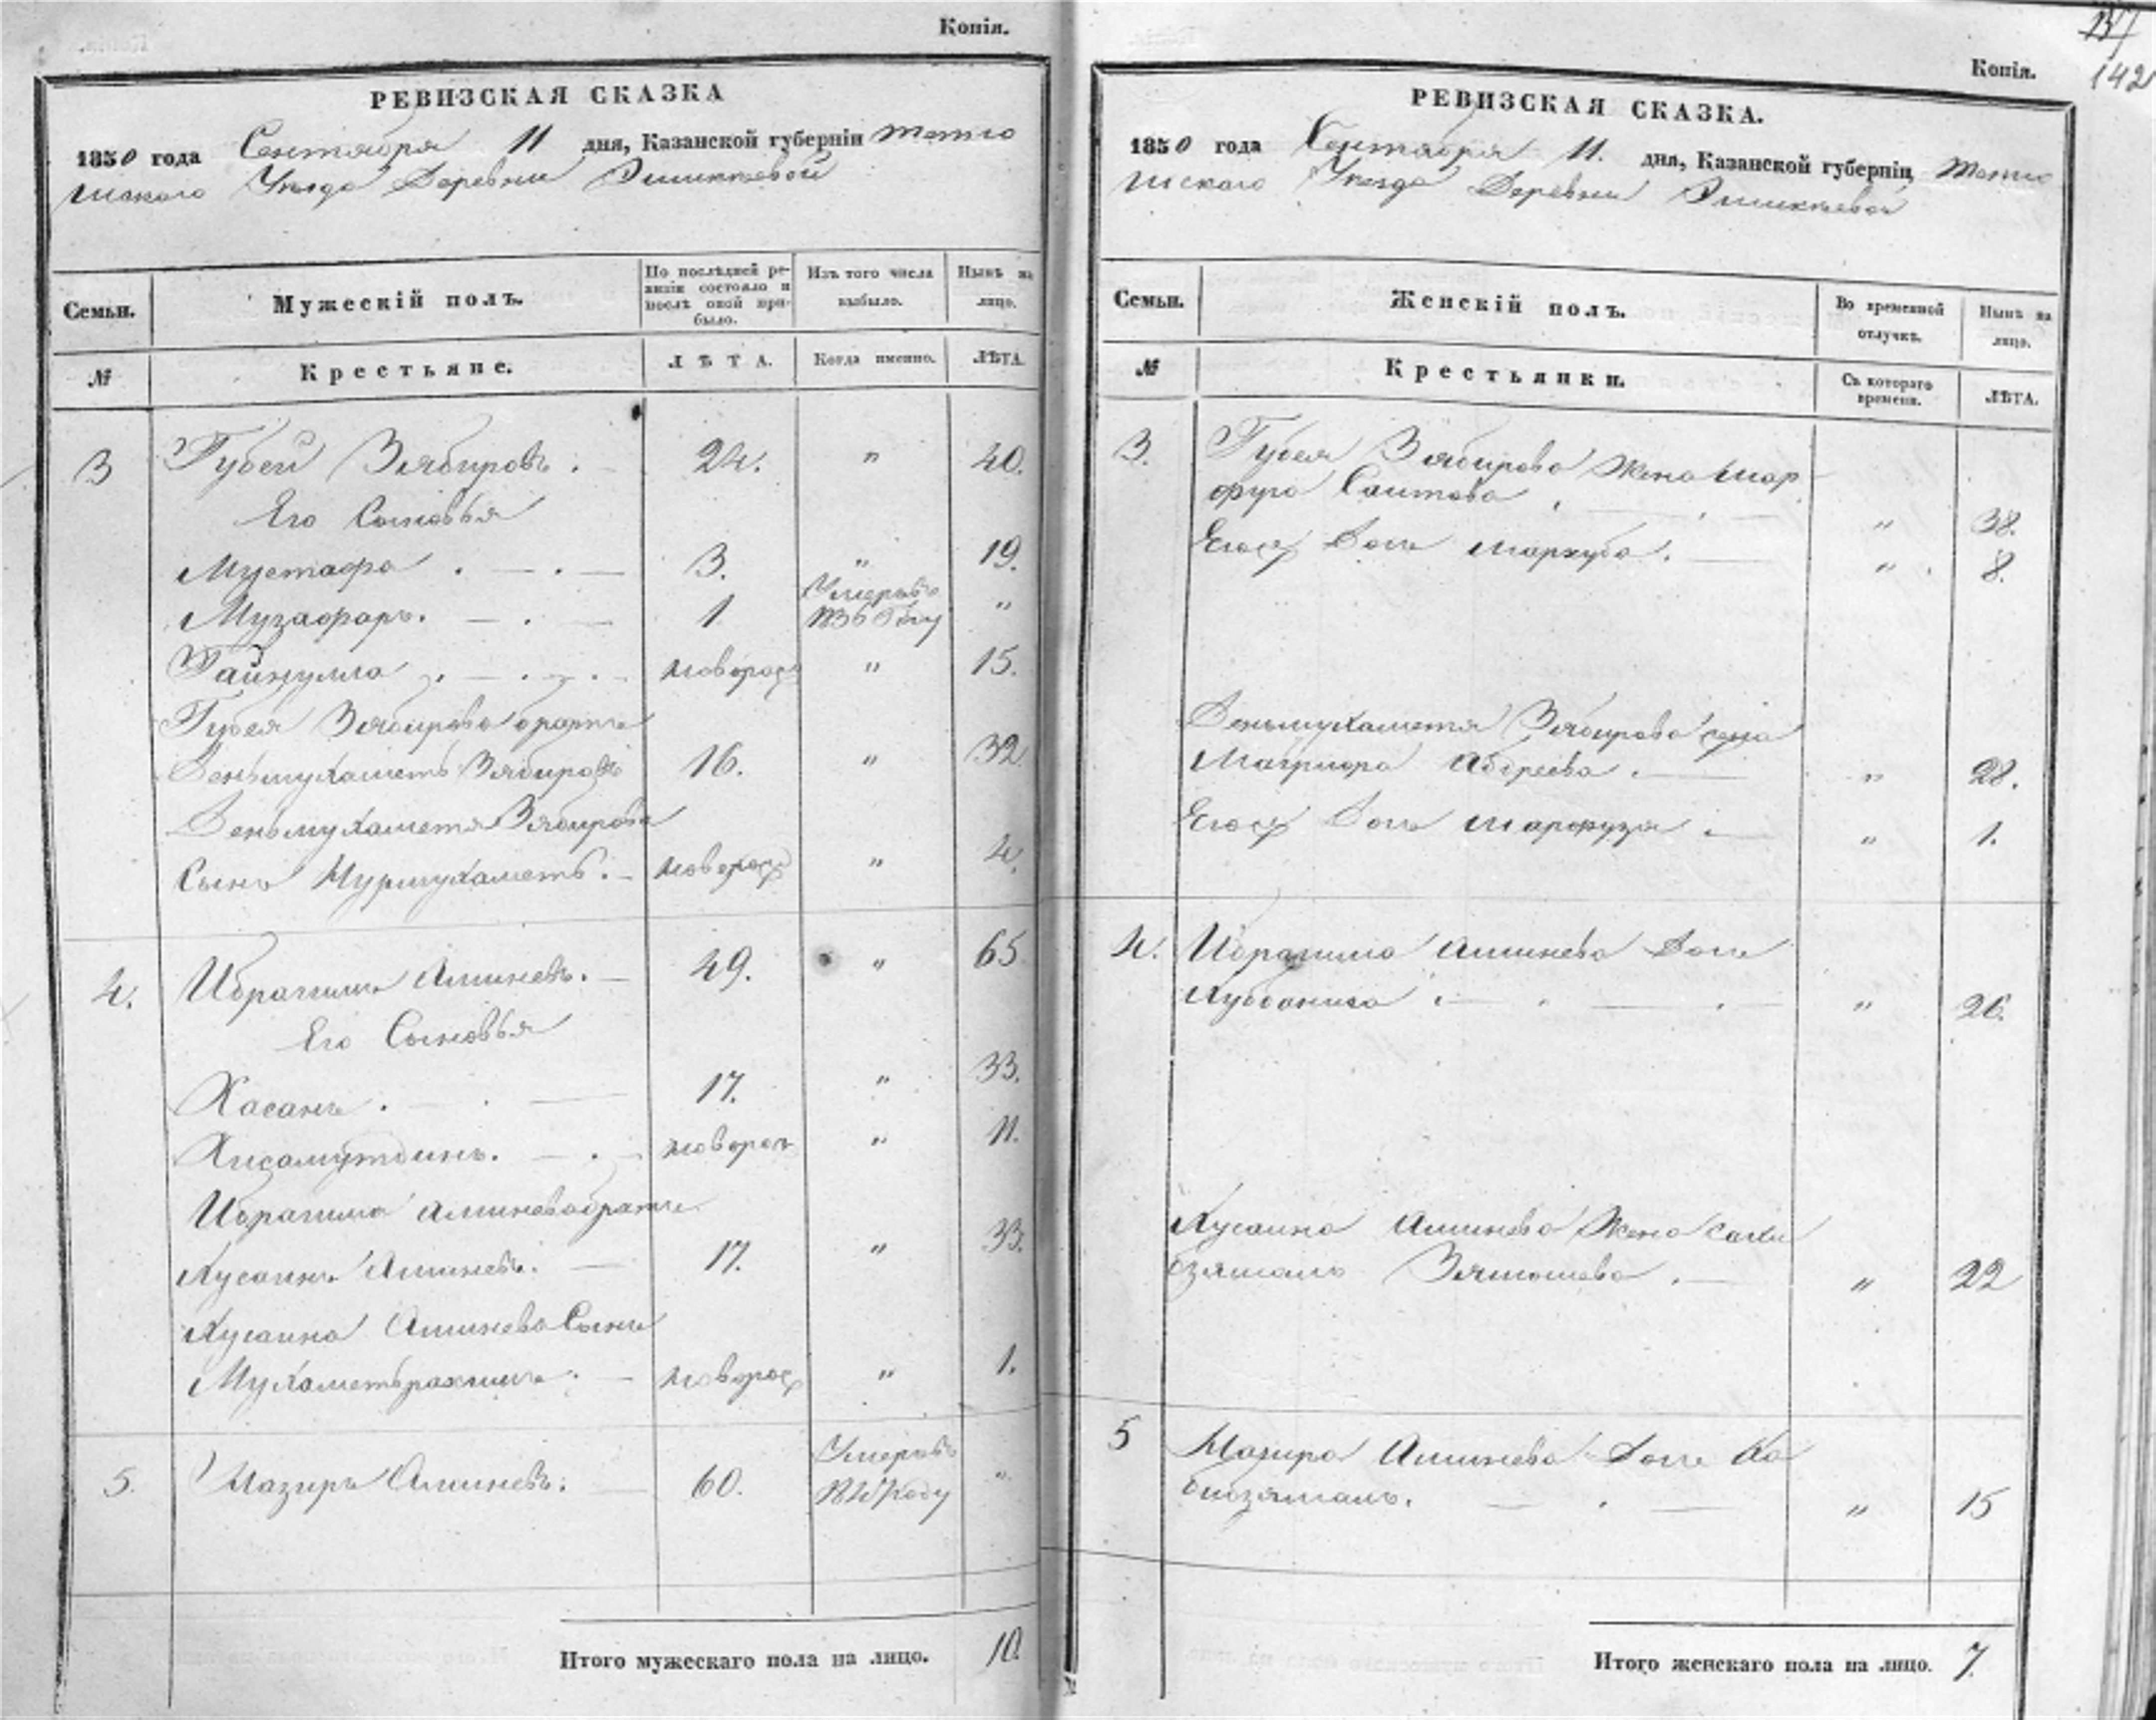 Копія.
РЕВИЗСКАЯ СКАЗКА
1850 года Сентября 11 дня, Казанской губерніи Тетю
шскаго Уѣзда Деревни
Семьи.
Мужескій полъ.
По послѣдней ре-
визіи состояло и
послѣ оной при-
было.
Изъ того числа
выбыло.
Нынѣ на
лицо.
№
Крестьяне.
ЛѢТА.
Когда именно.
ЛѢТА.
3 Губей Зябировъ. 24. " 40.
Его Сыновья
Мустафа . — . — 3. " 19.
Музафаръ. — . — 1 Умеръ въ 1836 Году "
Гайнулла . — . — . новорож " 15.
Губея Зябирова братъ
Деньмухаметъ Зябировъ 16. " 32.
Деньмухаметя Зябирова
Сынъ Нурмухаметъ. — новорож " 4.
4. Ибрагимъ Аминевъ. — 49. " 65
Его Сыновья
Хасанъ . — . — 17. " 33.
Хисамутдинъ. — . — новорож " 11.
Ибрагима Аминева братъ
Хусаинъ Аминевъ. — 17. " 33.
Хусаина Аминева Сынъ
Мухаметьрахимъ . — новорож " 1.
5. Назиръ Аминевъ. — 60. Умеръ въ Году "
Итого мужескаго пола на лицо. 10.
142
Копія.
РЕВИЗСКАЯ СКАЗКА.
1850 года Сентября 11. дня, Казанской губерніи, Тетю
шскаго Уѣзда Деревни
Семьи.
Женскій полъ.
Во временной
отлучкѣ.
Нынѣ на
лицо.
№
Крестьянки.
Съ котораго
времени.
ЛѢТА.
3. Губея Зябирова жена Мар-
фуга Саитова . — . — " 38.
Его дочь Мархуба. — " . 8.
Деньмухаметя Зябирова жена
Абдреева . — " 28.
Его дочь Марфуза . — " 1.
4. Ибрагима Аминева дочь
. — . — . — " 26.
Хусаина Аминева Жена Сахи
бзямалъ . — " 22
5 Назира Аминева дочь Ка
бибзямалъ. — . — " 15
Итого женскаго пола на лицо. 7.